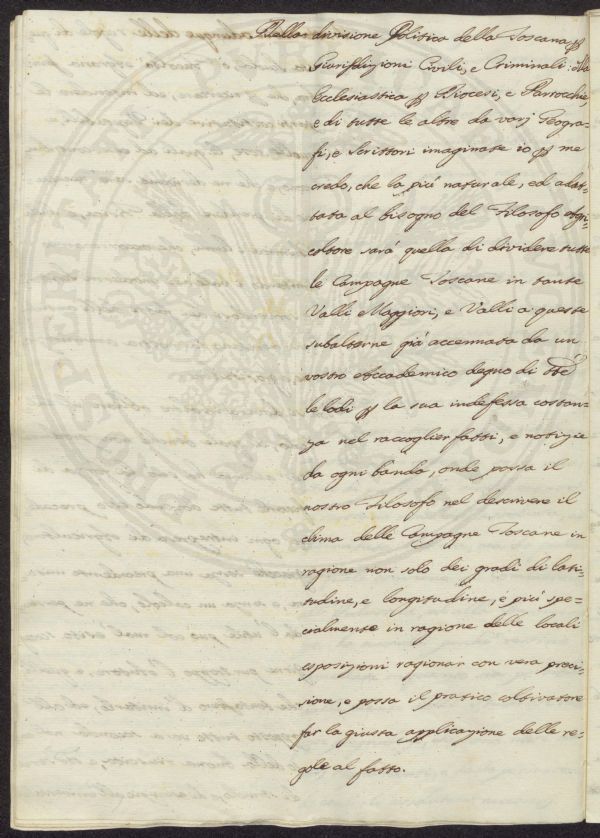 Nella divisione Politica della Toscana p
Giurisdizioni Civili, e Criminali: Alla
Ecclesiastica p Diocesi, e Parrocchie,
e di tutte le altre da varj Geogra-
fi, e Scrittori imaginate io p me
credo, che la più naturale, ed adat-
tata al bisogno del Filosofo Agri-
coltore sarà quella di dividere tutte
le Campagne Toscane in tante
Valli Maggiori, e Valli a queste
subalterne già accennata da un
vostro Accademico degno di tte
le lodi p la sua indefessa costan-
za nel raccoglier fatti, e notizie
da ogni banda, onde possa il
nostro Filosofo nel descrivere il
clima delle Campagne Toscane in
ragione non solo dei gradi di lati-
tudine, e longitudine, e più spe-
cialmente in ragione delle locali
esposizioni ragionar con vera preci-
sione, e possa il pratico coltivatore
far la giusta applicazione delle re-
gole al fatto.